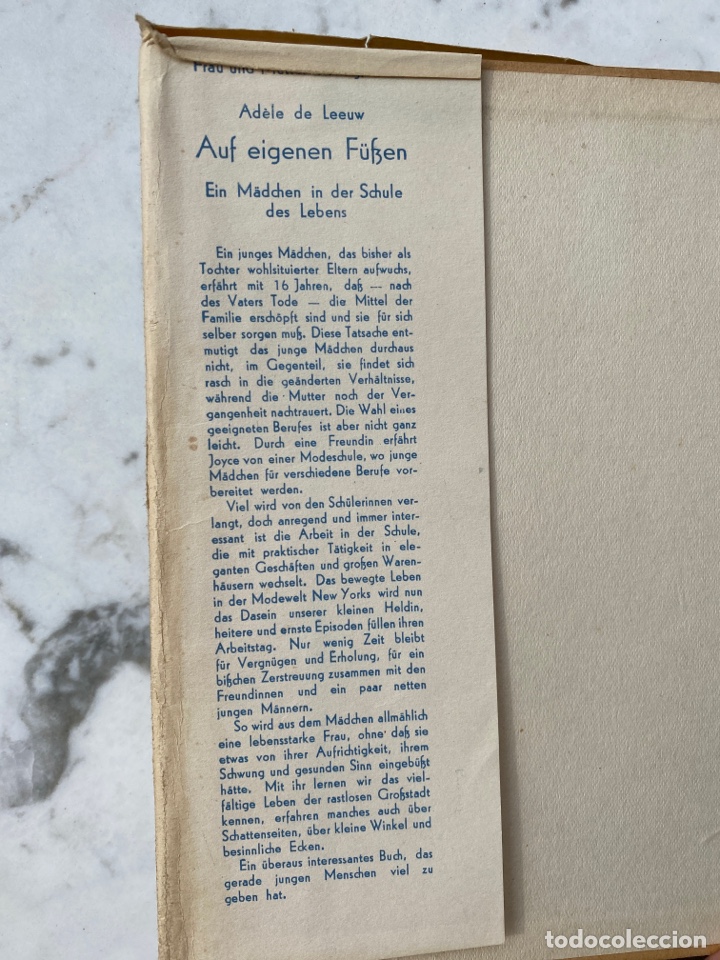 Frau und
Adèle de Leeuw
Auf eigenen Füßen
Ein Mädchen in der Schule
des Lebens
Ein junges Mädchen, das bisher als
Tochter wohlsituierter Eltern aufwuchs,
erfährt mit 16 Jahren, daß — nach
des Vaters Tode — die Mittel der
Familie erschöpft sind und sie für sich
selber sorgen muß. Diese Tatsache ent-
mutigt das junge Mädchen durchaus
nicht, im Gegenteil, sie findet sich
rasch in die geänderten Verhältnisse,
während die Mutter noch der Ver-
gangenheit nachtrauert. Die Wahl eines
geeigneten Berufes ist aber nicht ganz
leicht. Durch eine Freundin erfährt
Joyce von einer Modeschule, wo junge
Mädchen für verschiedene Berufe vor-
bereitet werden.
Viel wird von den Schülerinnen ver-
langt, doch anregend und immer inter-
essant ist die Arbeit in der Schule,
die mit praktischer Tätigkeit in ele-
ganten Geschäften und großen Waren-
häusern wechselt. Das bewegte Leben
in der Modewelt New Yorks wird nun
das Dasein unserer kleinen Heldin,
heitere und ernste Episoden füllen ihren
Arbeitstag. Nur wenig Zeit bleibt
für Vergnügen und Erholung, für ein
bißchen Zerstreuung zusammen mit den
Freundinnen und ein paar netten
jungen Männern.
So wird aus dem Mädchen allmählich
eine lebensstarke Frau, ohne daß sie
etwas von ihrer Aufrichtigkeit, ihrem
Schwung und gesunden Sinn eingebüßt
hätte. Mit ihr lernen wir das viel-
fältige Leben der rastlosen Großstadt
kennen, erfahren manches auch über
Schattenseiten, über kleine Winkel und
besinnliche Ecken.
Ein überaus interessantes Buch, das
gerade jungen Menschen viel zu
geben hat.
todocoleccion.net